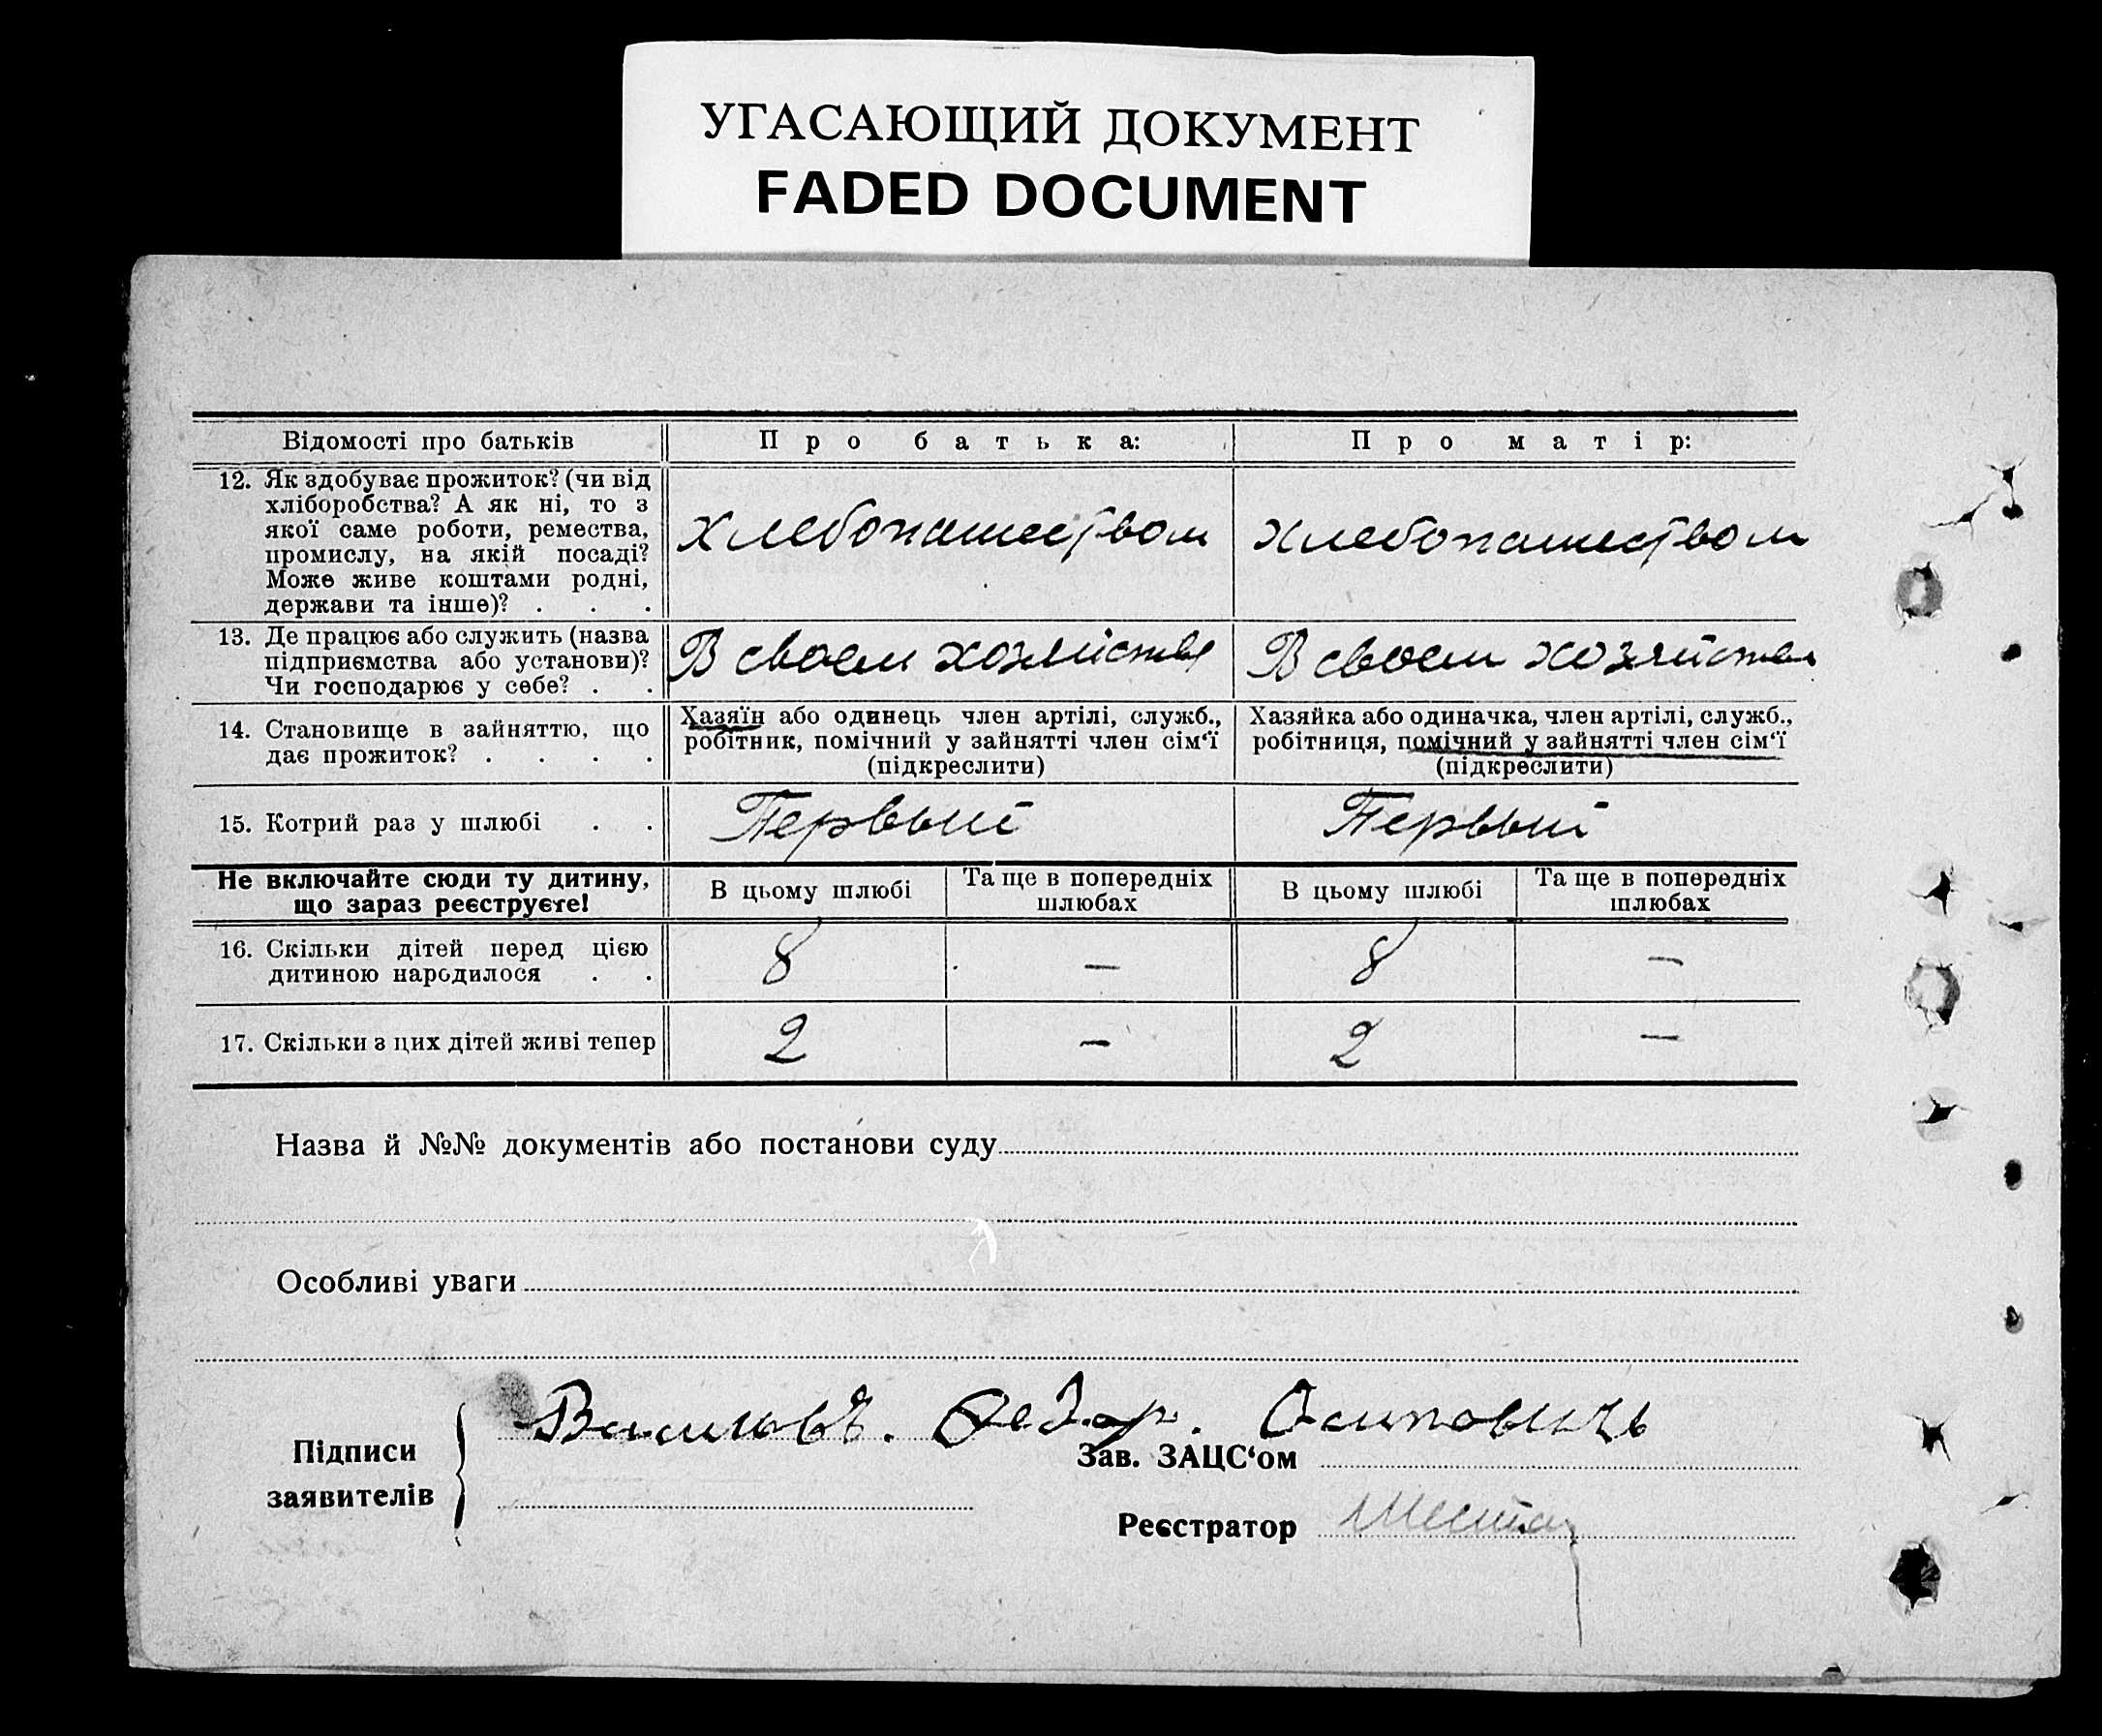 УГАСАЮЩИЙ ДОКУМЕНТ
FADED DOCUMENT
Відомості про батьків
Про батька:
Про матір:
12. Як здобуває прожиток? (чи від
хліборобства? А як ні, то з
якої саме роботи, ремества,
промислу, на якій посаді?
Може живе коштами родні,
держави та інше)? . . .
Хлебопашеством
Хлебопашеством
13. Де працює або служить (назва
підприємства або установи)?
Чи господарює у себе? . .
В своем хозяйстве
В своем хозяйстве
14. Становище в зайняттю, що
дає прожиток? . . . .
Хазяїн або одинець член артілі, служб.,
робітник, помічний у зайнятті член сім'ї
(підкреслити)
Хазяйка або одиначка, член артілі, служб.,
робітниця, помічний у зайнятті член сім'ї
(підкреслити)
15. Котрий раз у шлюбі . .
Первый
Первый
Не включайте сюди ту дитину,
що зараз реєструєте!
В цьому шлюбі
Та ще в попередніх
шлюбах
В цьому шлюбі
Та ще в попередніх
шлюбах
16. Скільки дітей перед цією
дитиною народилося . .
8
—
8
—
17. Скільки з цих дітей живі тепер
2
—
2
—
Назва й №№ документів або постанови суду
Особливі уваги
Підписи
заявителів
Васильовъ. Федор. Осиповичь
Зав. ЗАЦС'ом
Реєстратор